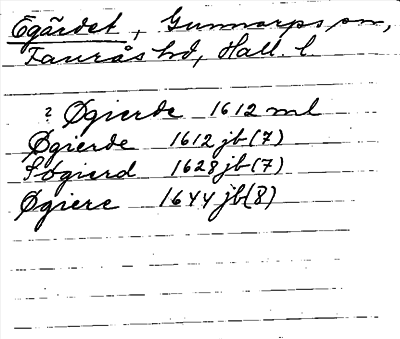 Egärdet, Gunnarps sn,
Faurås hd, Hall. l.
? Øgierde 1612 ml
Øgierde 1612 jb (7)
Søgierd 1628 jb (7)
Øgiere 1644 jb (8)